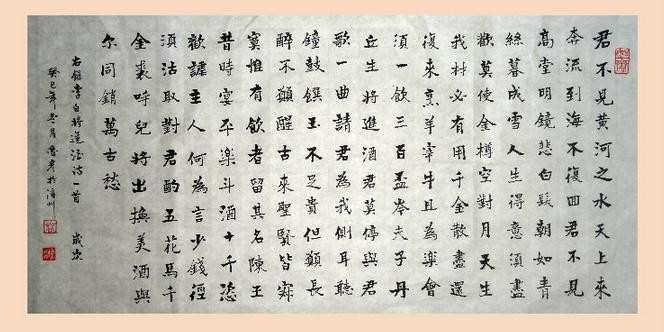 君不見黃河之水天上來
奔流到海不復回君不見
高堂明鏡悲白髮朝如青
絲暮成雪人生得意須盡
歡莫使金樽空對月天生
我材必有用千金散盡還
復來烹羊宰牛且為樂會
須一飲三百盃岑夫子丹
丘生將進酒君莫停與君
歌一曲請君為我側耳聽
鐘鼓饌玉不足貴但願長
醉不願醒古來聖賢皆寂
寞惟有飲者留其名陳王
昔時宴平樂斗酒十千恣
歡謔主人何為言少錢徑
須沽取對君酌五花馬千
金裘呼兒將出換美酒與
尔同銷萬古愁
右錄李白將進酒詩一首 歲次
癸巳年冬月